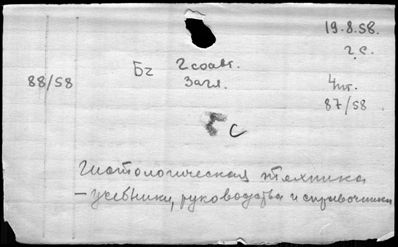 19.8.58.
г.с.
Бг 2 соавт.
88/58 Загл. 4 шт.
87/58
с
гистологическая техника
— учебники, руководства и справочники